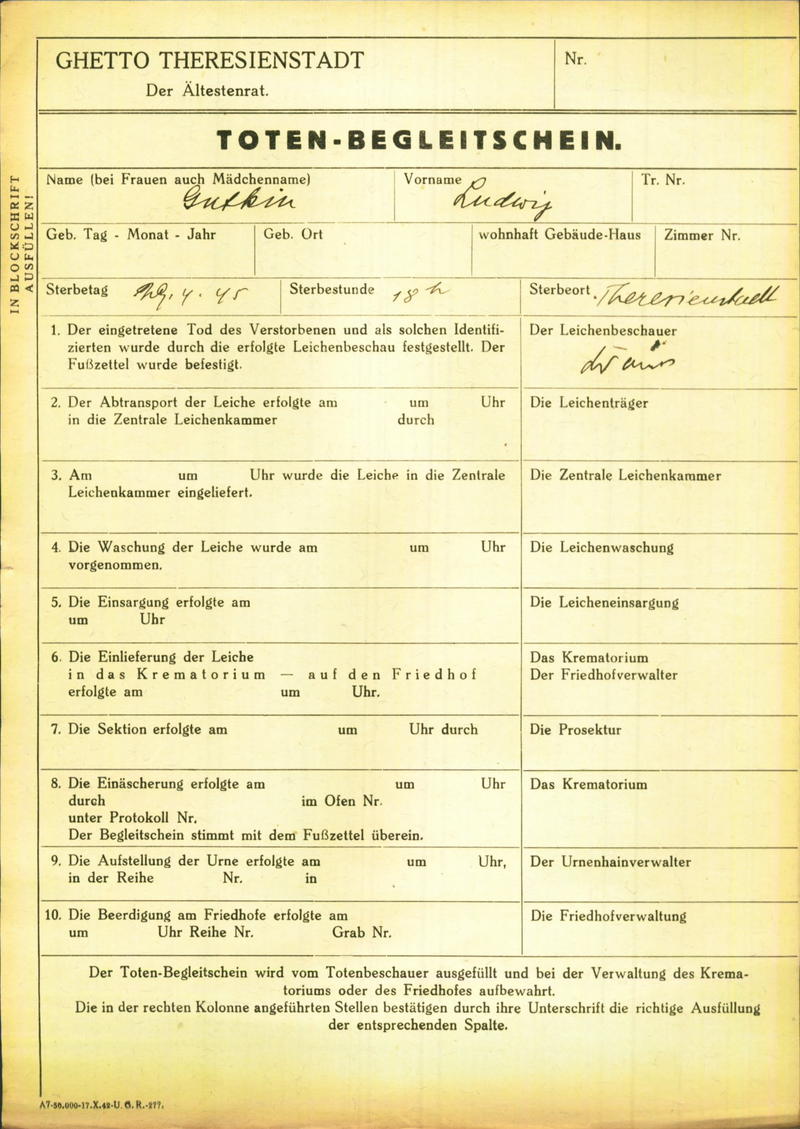 GHETTO THERESIENSTADT
Der Ältestenrat.
Nr.
TOTEN-BEGLEITSCHEIN.
IN BLOCKSCHRIFT
AUSFÜLLEN!
Name (bei Frauen auch Mädchenname)
Gutkin
Vorname
Ludwig
Tr. Nr.
Geb. Tag - Monat - Jahr
Geb. Ort
wohnhaft Gebäude-Haus
Zimmer Nr.
Sterbetag 4. 45
Sterbestunde 18 h
Sterbeort Theresienstadt
1. Der eingetretene Tod des Verstorbenen und als solchen Identifi-
zierten wurde durch die erfolgte Leichenbeschau festgestellt. Der
Fußzettel wurde befestigt.
Der Leichenbeschauer
2. Der Abtransport der Leiche erfolgte am um Uhr
in die Zentrale Leichenkammer durch
Die Leichenträger
3. Am um Uhr wurde die Leiche in die Zentrale
Leichenkammer eingeliefert.
Die Zentrale Leichenkammer
4. Die Waschung der Leiche wurde am um Uhr
vorgenommen.
Die Leichenwaschung
5. Die Einsargung erfolgte am
um Uhr
Die Leicheneinsargung
6. Die Einlieferung der Leiche
in das Krematorium — auf den Friedhof
erfolgte am um Uhr.
Das Krematorium
Der Friedhofverwalter
7. Die Sektion erfolgte am um Uhr durch
Die Prosektur
8. Die Einäscherung erfolgte am um Uhr
durch im Ofen Nr.
unter Protokoll Nr.
Der Begleitschein stimmt mit dem Fußzettel überein.
Das Krematorium
9. Die Aufstellung der Urne erfolgte am um Uhr,
in der Reihe Nr. in
Der Urnenhainverwalter
10. Die Beerdigung am Friedhofe erfolgte am
um Uhr Reihe Nr. Grab Nr.
Die Friedhofverwaltung
Der Toten-Begleitschein wird vom Totenbeschauer ausgefüllt und bei der Verwaltung des Krema-
toriums oder des Friedhofes aufbewahrt.
Die in der rechten Kolonne angeführten Stellen bestätigen durch ihre Unterschrift die richtige Ausfüllung
der entsprechenden Spalte.
A7-50.000-17.X.42-U. G. R.-277.